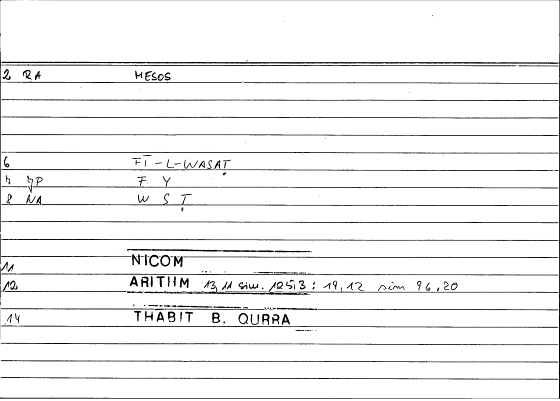 2 RA MESOS
6 FĪ-L-WASAṬ
7 JP F Y
8 NA W S Ṭ
11 NICOM
12 ARITHM 13,11 sim. 125,3 : 19,12 sim 96,20
14 THABIT B. QURRA